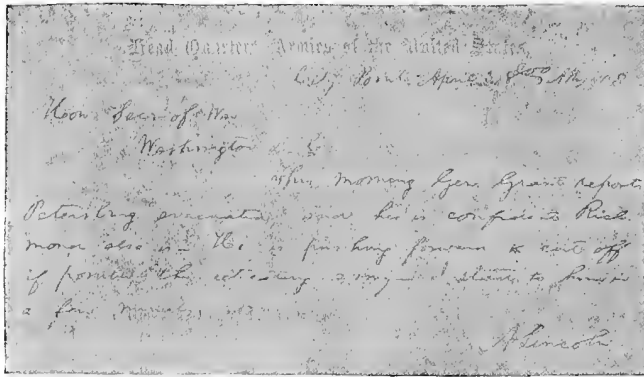 Head Quarters Armies of the United States,
City Point, April
Hon. Sec. of War
Washington
This morning Gen. Grant reports
Petersburg evacuated and he is confident Rich
mond also is. He is pushing forward to cut off
if possible the retreating army. I start to him in
a few minutes
A. Lincoln